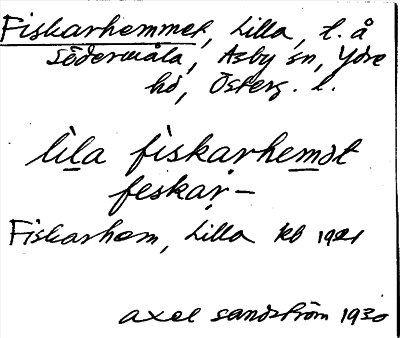 Fiskarhemmet, Lilla, t. å
Södermåla, Asby sn, Ydre
hd, Österg. l.
lìla fìskarhemət
feskar–
Fiskarhem, Lilla kb 1921
axel sandström 1930